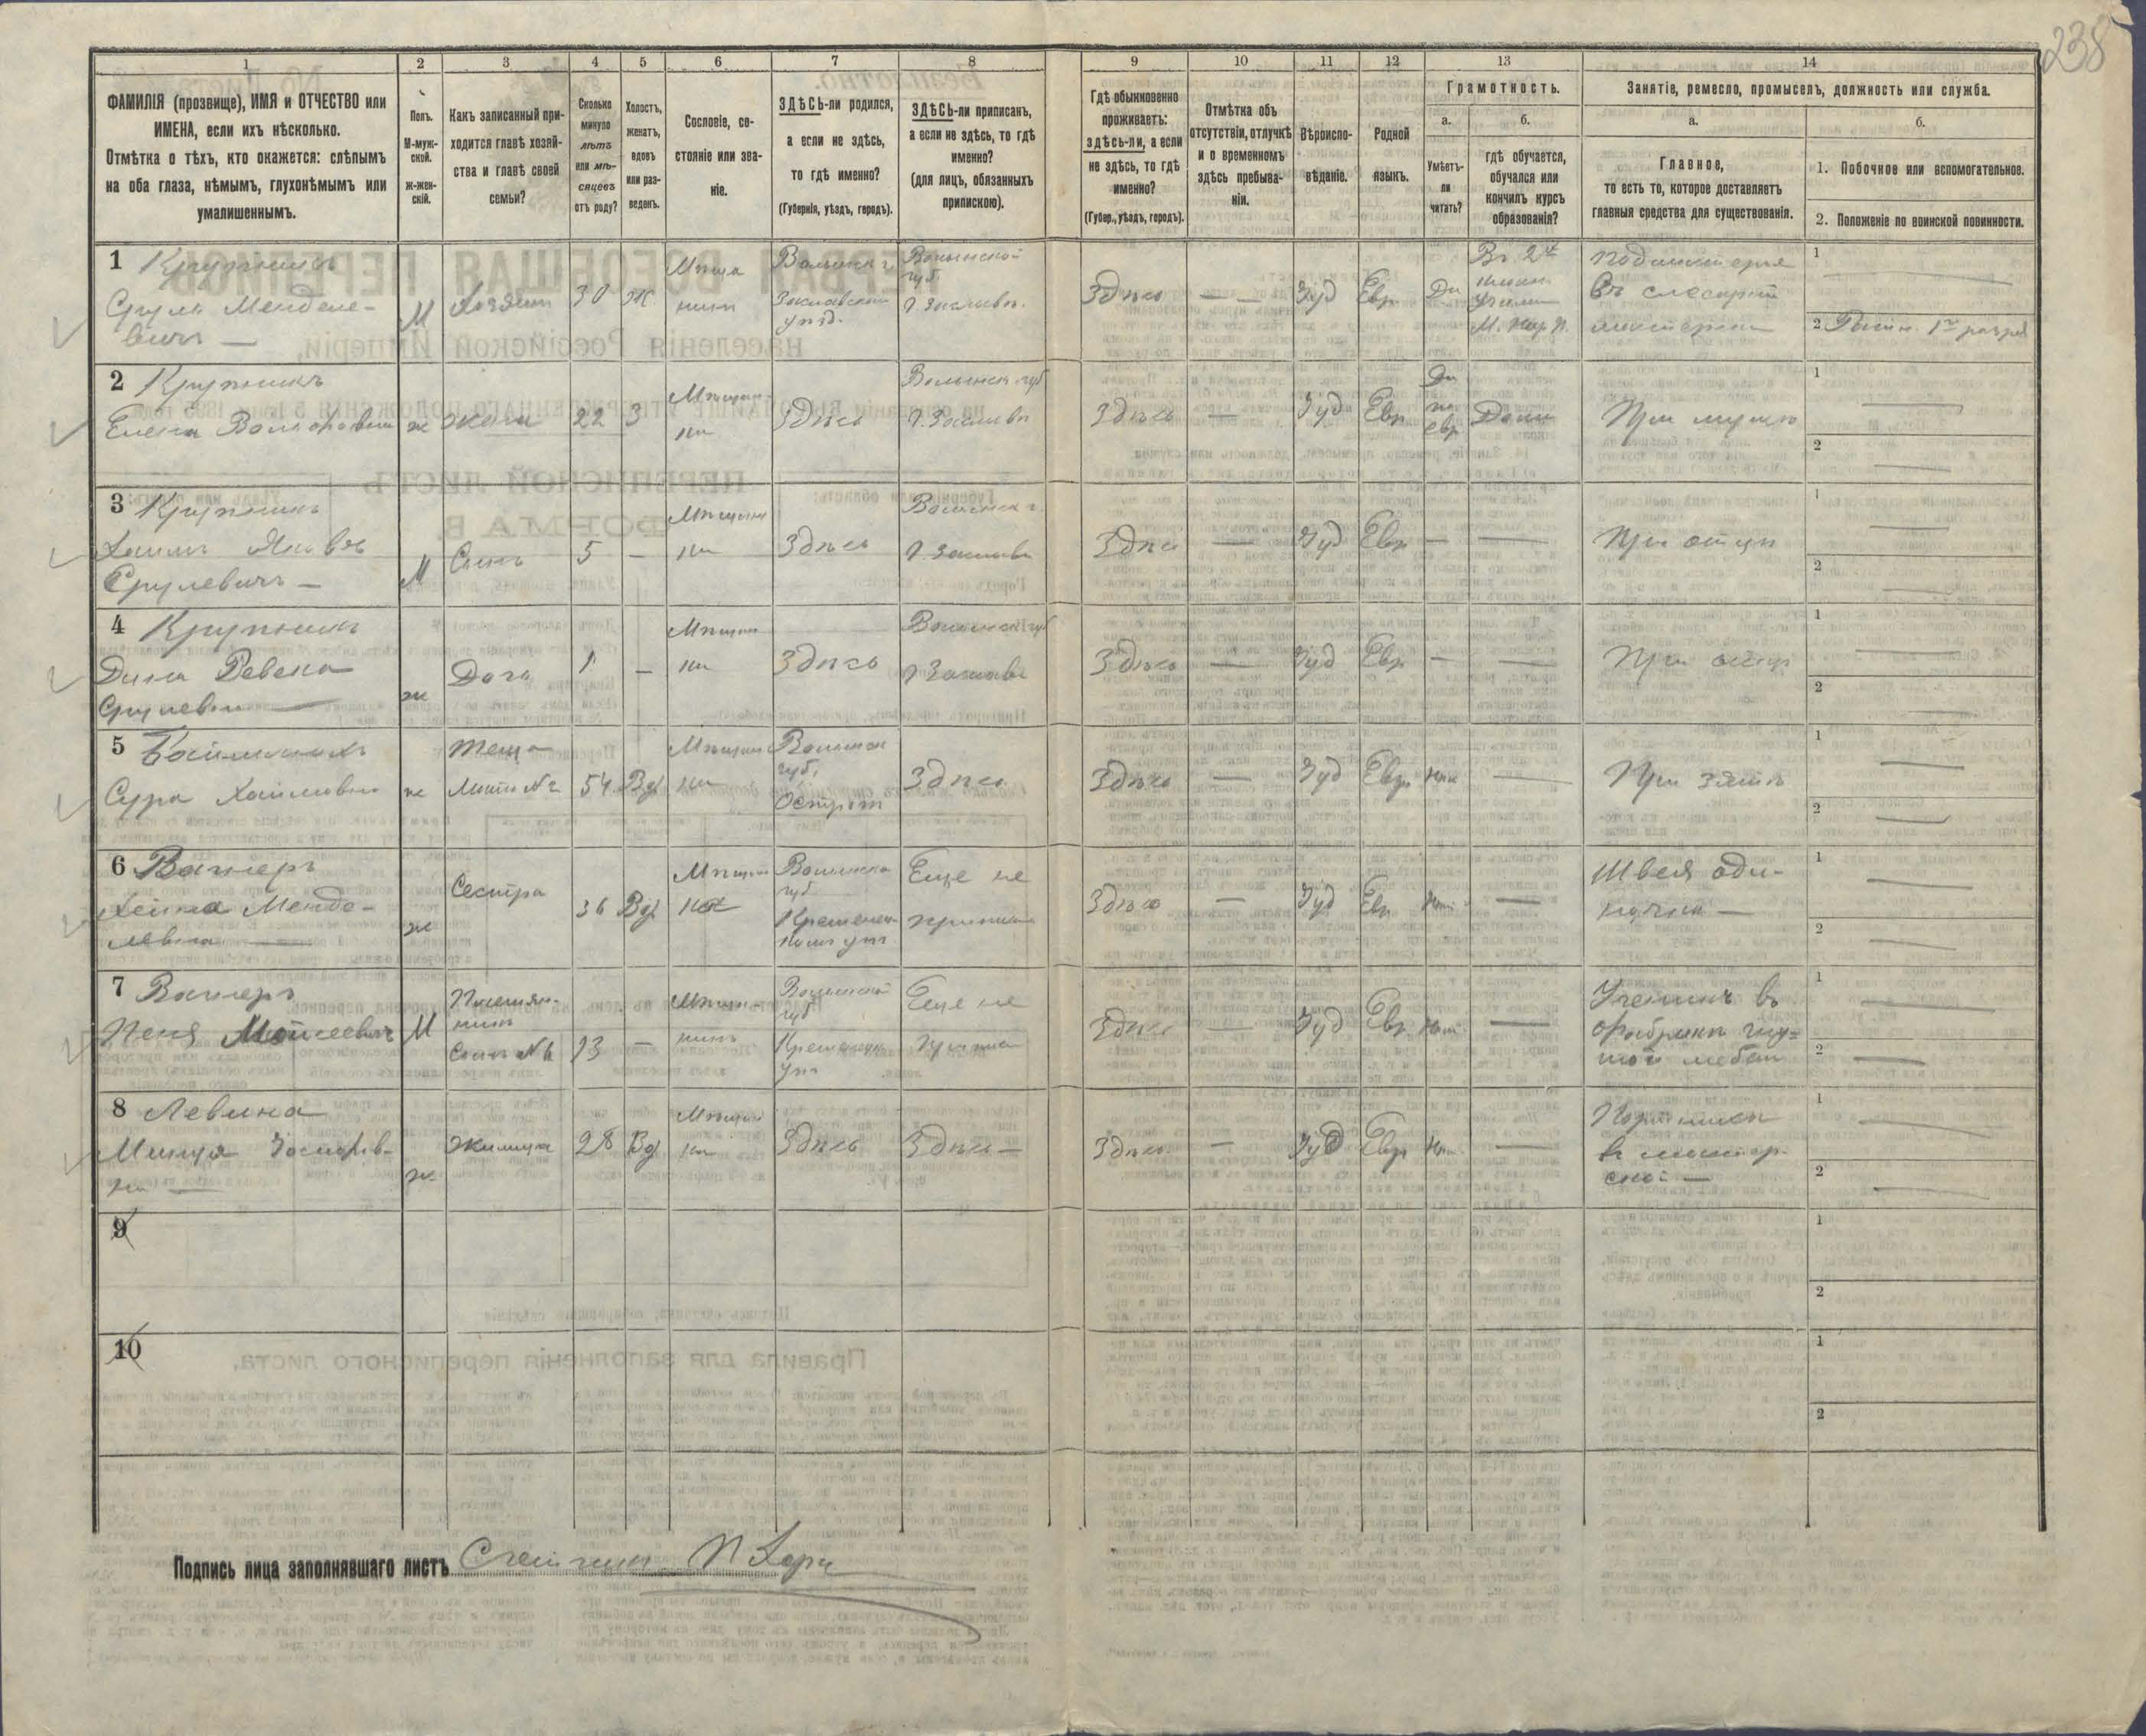 238
1
2
3
4
5
6
7
8
9
10
11
12
13
14
ФАМИЛІЯ (прозвище), ИМЯ и ОТЧЕСТВО или
ИМЕНА, если ихъ нѣсколько.
Отмѣтка о тѣхъ, кто окажется: слѣпымъ
на оба глаза, нѣмымъ, глухонѣмымъ или
умалишеннымъ.
Полъ.
М-муж-
ской.
ж-жен-
скій.
Какъ записанный при-
ходится главѣ хозяй-
ства и главѣ своей
семьи?
Сколько
минуло
лѣтъ
или мѣ-
сяцевъ
отъ роду?
Холостъ,
женатъ,
вдовъ
или раз-
веденъ.
Сословіе, со-
стояніе или зва-
ніе.
ЗДѢСЬ-ли родился,
а если не здѣсь,
то гдѣ именно?
(Губернія, уѣздъ, городъ).
ЗДѢСЬ-ли приписанъ,
а если не здѣсь, то гдѣ
именно?
(для лицъ, обязанныхъ
припискою).
Гдѣ обыкновенно
проживаетъ:
здѣсь-ли, а если
не здѣсь, то гдѣ
именно?
(Губер., уѣздъ, городъ).
Отмѣтка объ
отсутствіи, отлучкѣ
и о временномъ
здѣсь пребыва-
ніи.
Вѣроиспо-
вѣданіе.
Родной
языкъ.
Грамотность.
а.
Умѣетъ-
ли
читать?
б.
гдѣ обучается,
обучался или
кончилъ курсъ
образованія?
Занятіе, ремесло, промыселъ, должность или служба.
а.
Главное,
то есть то, которое доставляетъ
главныя средства для существованія.
б.
1. Побочное или вспомогательное.
2. Положеніе по воинской повинности.
1 Крупникъ
Сруль Менделе-
вичъ —
М
Хозяинъ
30
Ж
Мѣща
нинъ
Волынск г.
Заславскій
уѣзд.
Волынской
губ.
г. Заславъ.
Здѣсь
— —
Іуд
Евр.
Да
Въ 2 кл
М. Нар. П.
Подмастерье
въ слесарной
мастерской
1
2
1го разряд
2 Крупникъ
Елена
ж
жена
22
З
Мѣщан
ка
Здѣсь
Волынск губ
г. Заславъ
Здѣсь
—
Іуд
Евр
Да
по
евр
Дома
При мужѣ
1
2
3 Крупникъ
Хаимъ Яковъ
Срулевичъ —
М
Сынъ
5
—
Мѣщани
нъ
Здѣсь
Волынск г.
г. Заславъ
Здѣсь
—
Іуд
Евр
—
—
При отцѣ
1
2
4 Крупникъ
Дина Ревека
Срулевна —
ж
Дочь
1
—
Мѣщан
ка
Здѣсь
Волынской губ
г Заславъ
Здѣсь
—
Іуд
Евр
—
—
При отцѣ
1
2
5
Сура Хаимовна
ж
теща
Мать № 2
54
Вд
Мѣщан
ка
Волынск
губ,
Острогъ
Здѣсь
Здѣсь
—
Іуд
Евр
Нѣтъ
—
При зятѣ
1
2
6 Вагнеръ
Менде-
левна —
ж
Сестра
36
Вд
Мѣщан
ка
Волынска
губ
Кременец
комъ уѣз.
Еще не
приписана
Здѣсь
—
Іуд
Евр
Нѣтъ
—
Швея оди-
ночка —
1
2
7 Вагнеръ
Моисеевичъ
М
Племян-
никъ
Сынъ № 6
13
—
Мѣща-
нинъ
Волынской
губ
Кременец
уѣз
Еще не
приписа
Здѣсь
—
Іуд
Евр
Нѣтъ
—
Ученикъ въ
фабрикѣ гну-
той мебели
1
2
8 Левина
ж
Жилица
28
Вд
Мѣщан
ка
Здѣсь
Здѣсь —
Здѣсь
—
Іуд
Евр
Нѣтъ
—
Портниха
въ мастер
ской —
1
2
9
1
2
10
1
2
Подпись лица заполнявшаго листъ Счетчикъ